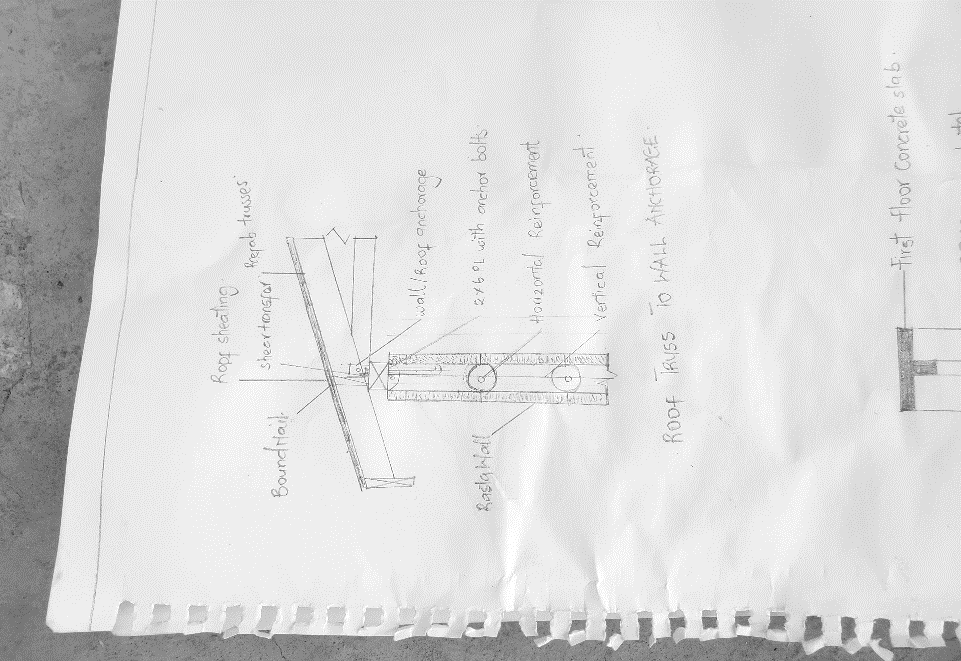 Prefab trusses
Roof sheating
shear transfar
Bound Nail
wall/Roof anchorage
2x6 PL with anchor bolts.
Horizontal Reinforcement
Vertical Reinforcement
Wall
ROOF TRUSS TO WALL ANCHORAGE.
First floor Concrete slab.